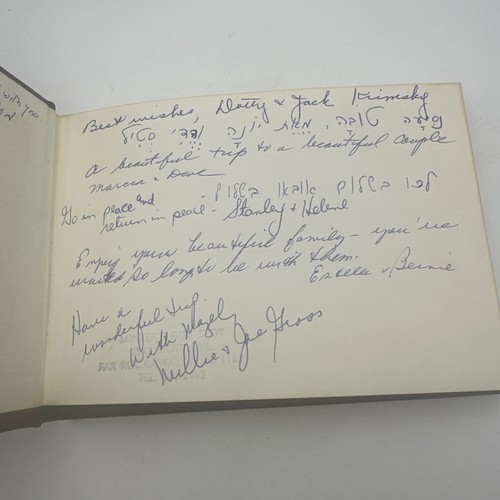 with you
Best wishes, Dotty & Jack Krimsky
נסיעה טובה, מאת יונה ודדי סטיל
A beautiful trip to a beautiful couple
Marcia & Dave
לכו בשלום ובואו בשלום
Go in peace and
return in peace - Stanley & Helene
Enjoy your beautiful family - you've
waited so long to be with them.
Estelle & Bernie
Have a
wonderful trip
With Mazel,
Millie & Joe Gross
FAR
TEL.